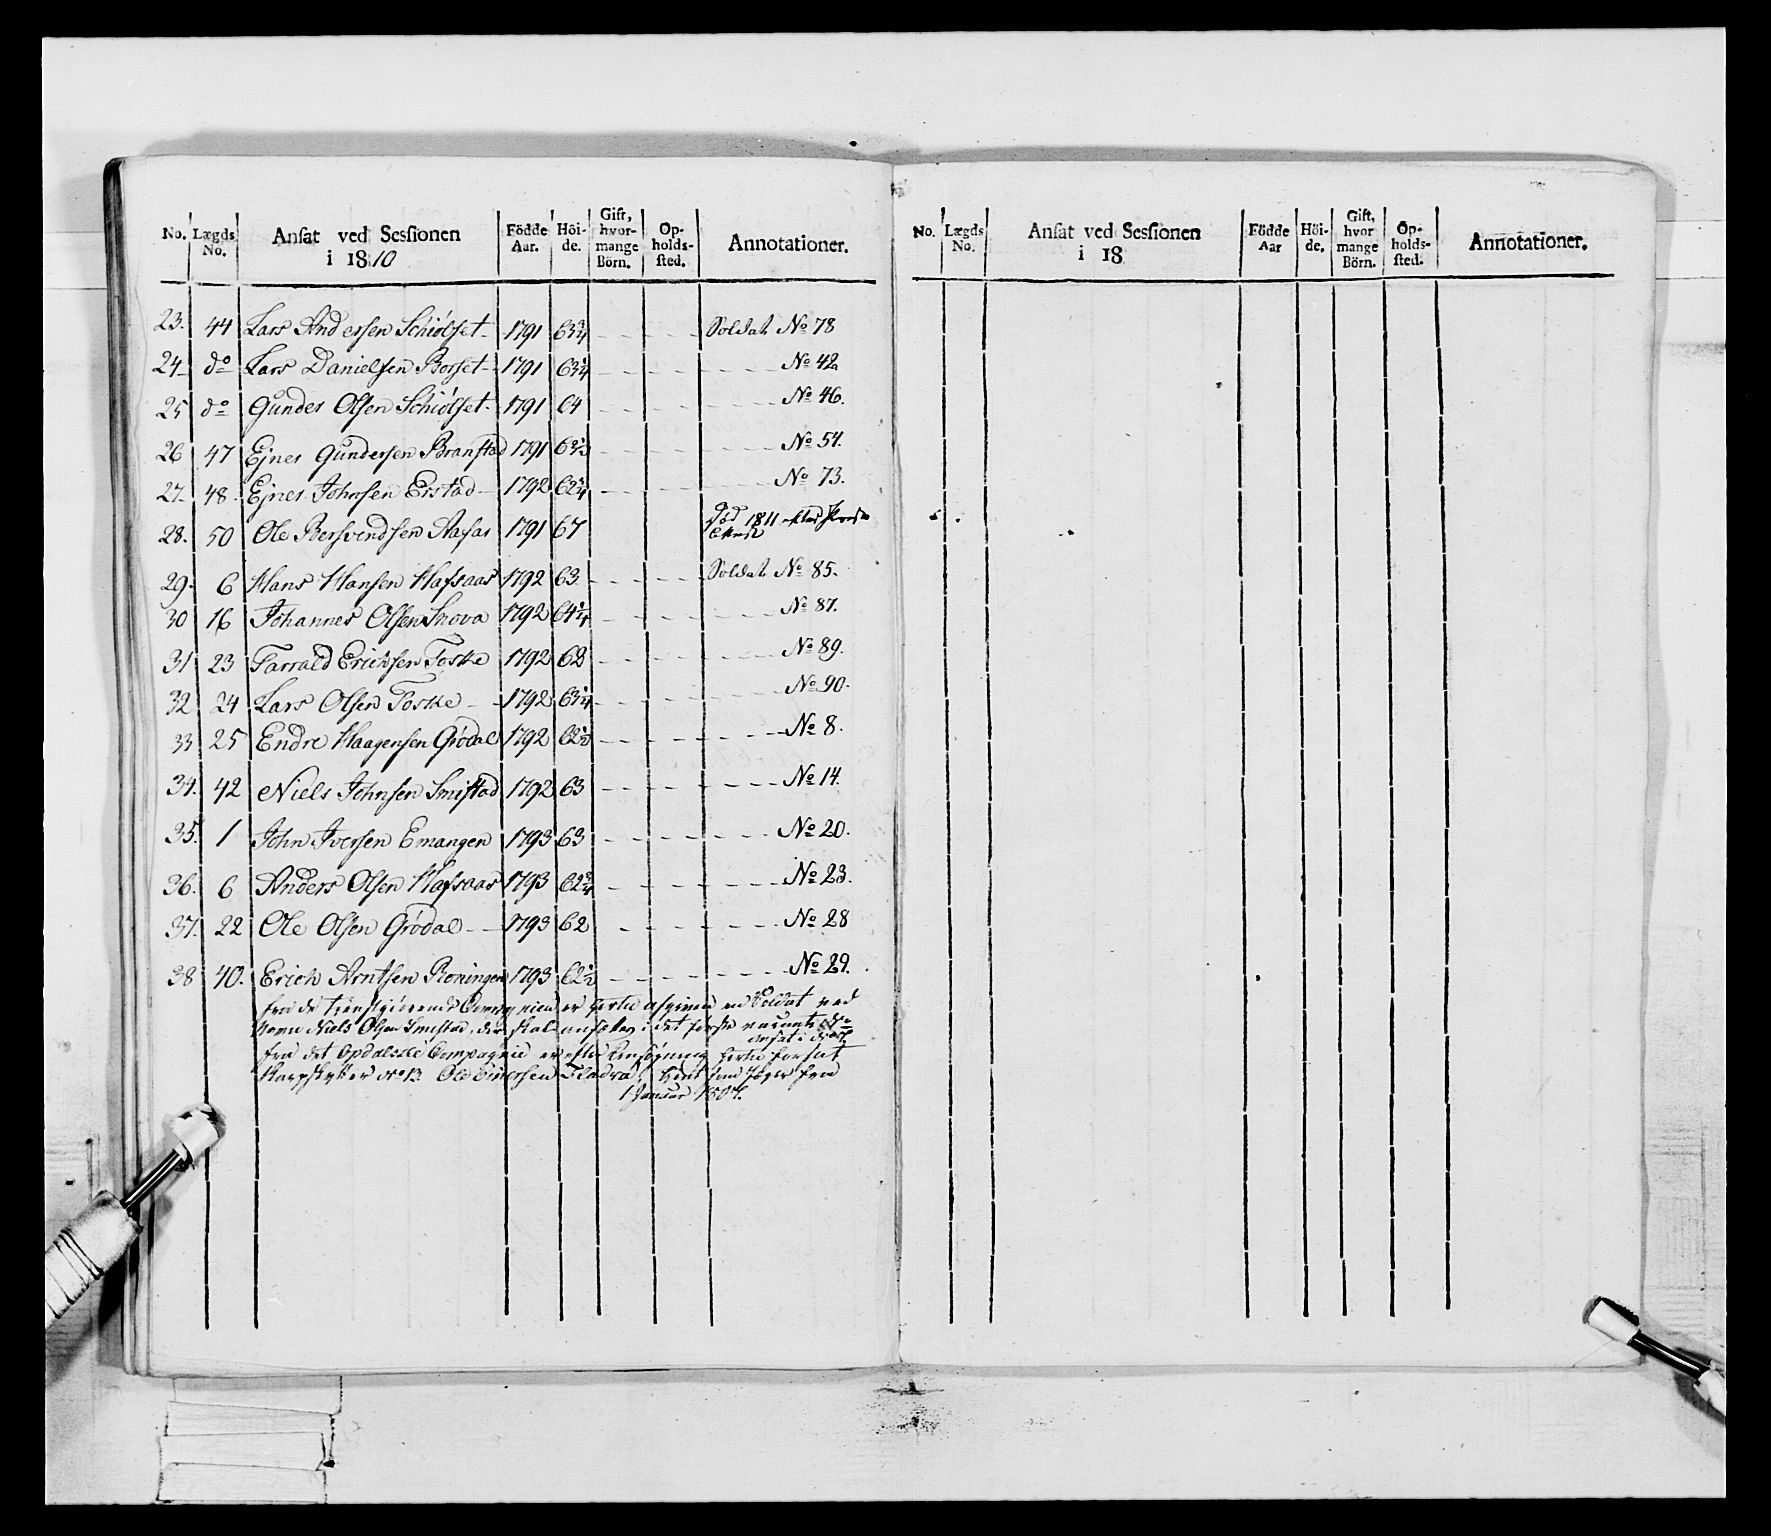 No. Lægds No. Ansat ved Sessionen i 1810 Födde Aar. Höide. Gift, hvormange Börn. Opholdssted. Annotationer.
23. 44 Lars Andersen Schiölset 1791 63¾ Soldat No 78
24 do Lars Danielsen Borset 1791 63¼ No 42
25 do Gunder Olsen Schiölset 1791 64 No 46.
26 47 Ejner Gundersen Branstad 1791 No 54.
27 48 Ejner Johnsen Erstad 1792 62¼ No 73.
28. 50 Ole Bersvendsen Aasas 1791 67 Död 1811
29. 6 Hans Hansen Hafsaas 1792 63 Soldat No 85.
30 16 Johannes Olsen Snova 1792 64¼ No 87.
31 23 Farrald Erichsen Foske 1792 62 No 89.
32 24 Lars Olsen Foske 1792 63¼ No 90.
33 25 Endre Haagensen Grödal 1792 62½ No 8.
34. 42 Niels Johnsen Smistad 1792 63 No 14.
35. 1 John Iversen Emangen 1793 63 No 20.
36. 6 Anders Olsen Hafsaas 1793 62¾ No 23.
37. 22 Ole Olsen Grödal 1793 62 No 28
38 40. Erich Arntsen Roningen 1793 62½ No 29.
fra de er hertil afgiven en Soldat ved
Navn Niels Olsen Smistad, der skal ansættes i det förste vacante No
ansat i
fra det Opdalske Compagnie er efter hertil forsat
Skarpskytter No 13 Ole Einersen tient som Jæger fra
1 Januar
No. Lægds No. Ansat ved Sessionen i 18 Födde Aar Höide. Gift, hvor mange Börn. Opholdssted. Annotationer.